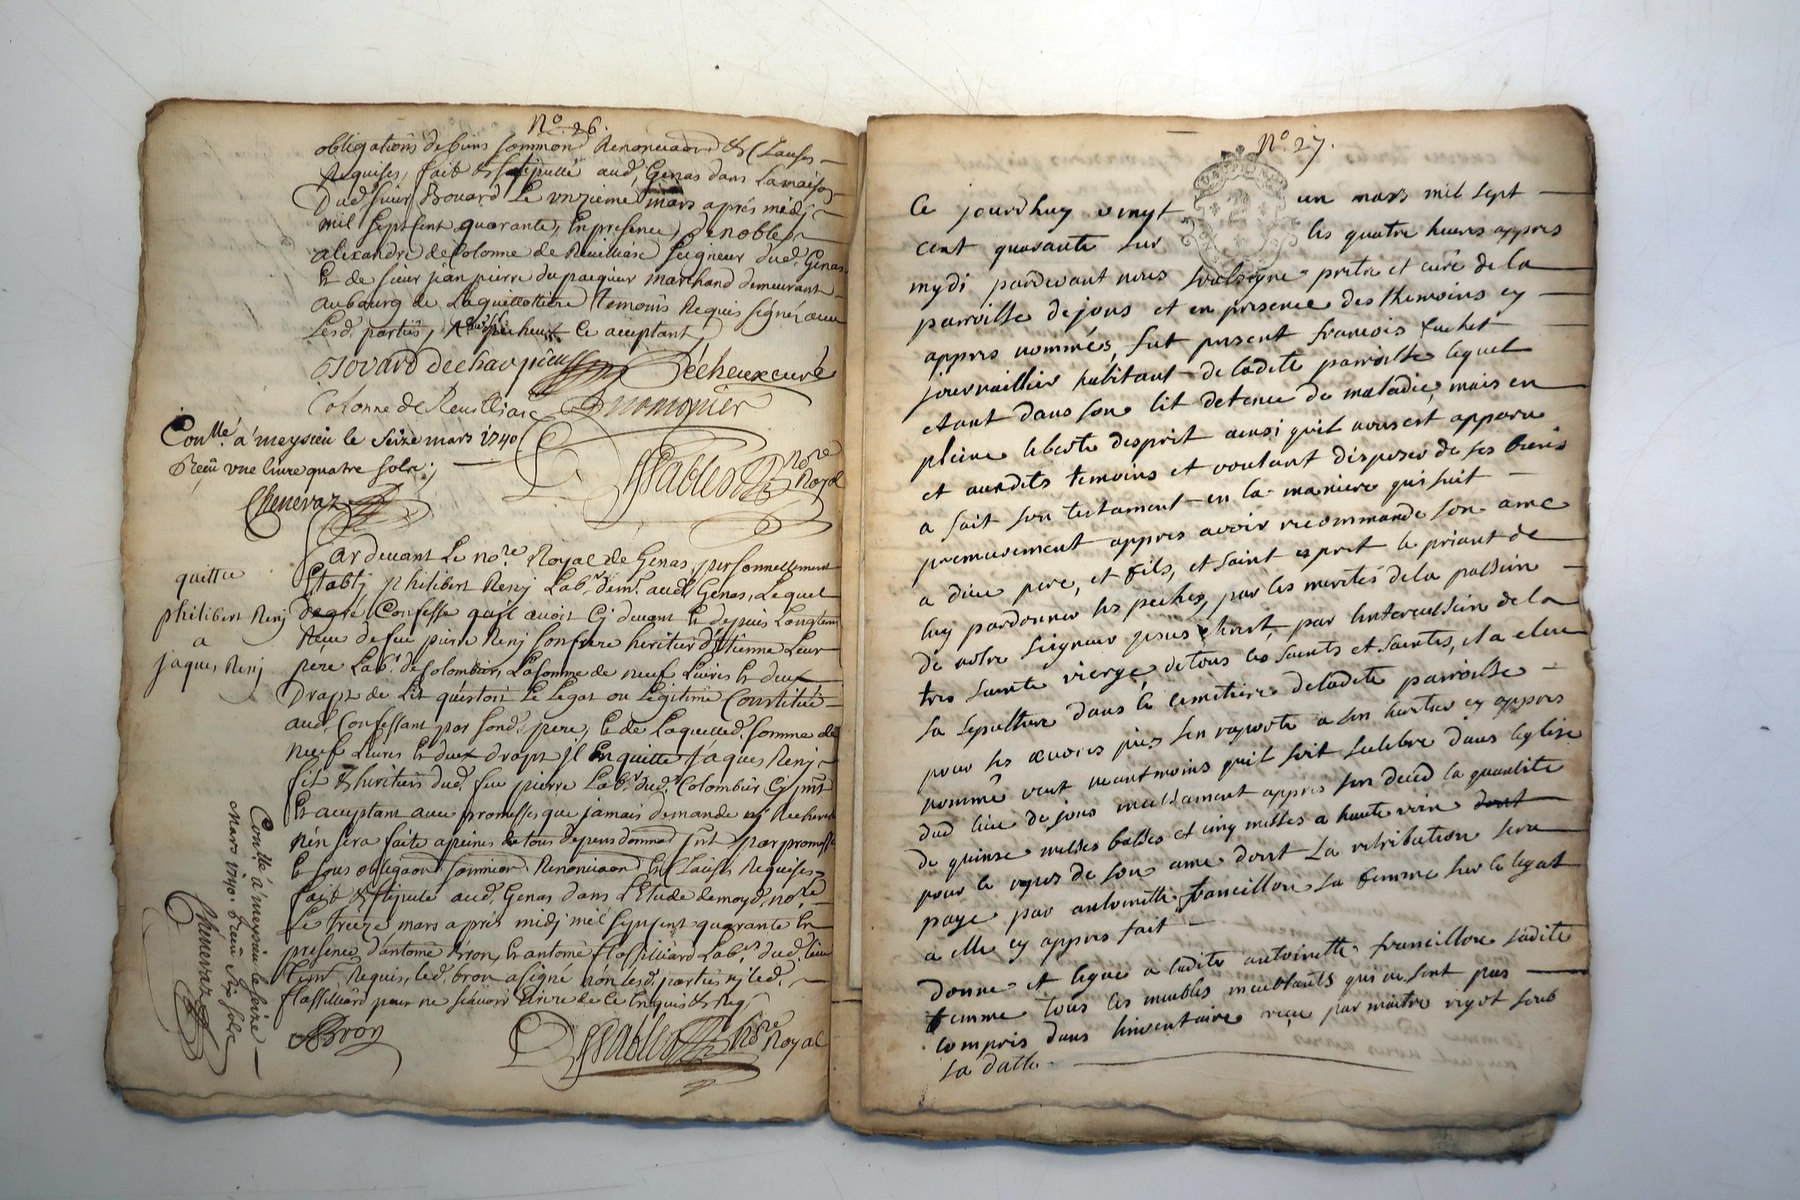 No. 26.
obligations de biens sommon Renonciaon & Clauses
Requises, fait & stipullé aud. Genas dans la maison
Dud. sieur Bouard Le unzieme mars aprés médy
mil sept sent quarante, En presence de noble
alexandre de Colonne de Reuilliasc Seigneur dud. Genas
Et de sieur jean pierre marchand demeurant
au bourg de Laguillotiere temoins Requis signé avec
Les d. parties, pecheux Ce aceptant
Pécheux curé
Colonne de Reuilliasc
Con.llé a meysieu le seize mars 1740
Receu une livre quatre sols;
Chenevaz
No.re Royal
Par devant Le no.re Royal de Genas, personnellement
Etably philibert Renj Lab.r dem.t aud. Genas, Lequel
de gré Confesse qu'il avoit Cy devant Et depuis Longtems
Receu de feu pierre Renj son frere heritier d'Etienne Leur
pere Lab.r de Colombier, La somme de neuf Livres Et deux
Draps de Lit questoit Le Legat ou Legitime Constitué
aud. Confessant par sond. pere, Et de Laquelled. somme de
neuf Livres Et deux draps jl En quitte Jaques Renj
fils & heritier dud. feu pierre Lab.r dud. Colombier Cy pnt
Et aceptant avec promesse que jamais demande nj Recherche
n'en sera faite a peines de tous depens dommat jnt par promesse
Et sous obligaon sommion Renonciaon Et Clauses Requises
fait & stipulé aud. Genas dans L'Etude de moyd. no.re
Le treze mars aprés midj mil sept sent quarante En
presence d'antoine Bron, Et antoine flassilliard Lab.rs dud. lieu
tem. Requis, led. bron a signé non Lesd. parties nj led.
flassilliard pour ne sçavoir Ecrire de ce Enquis & Req.
ABron
No.re Royal
quitta
philibert Renj
a
jaques Renj
Con.llé a meysieu le seize
Mars 1740. Receu six sols
Chenevaz
No. 27.
Ce jourdhuy vingt un mars mil sept
cent quarante sur les quatre heures appres
mydi pardevant nous soubsigne pretre et curé de la
parroisse de jons et en presence des themoins cy
appres nommés, fut present francois
journaillier habitant de ladite parroisse lequel
etant dans son lit detenu de maladie, mais en
pleine liberte desprit ainsi quil nous est apparu
et auxdits temoins et voulant disposer de ses biens
a fait son testament en la maniere qui suit
premierement appres avoir recommande son ame
a dieu pere, et fils, et saint esprit le priant de
luy pardonner ses peches, par les merites de la passion
de notre seigneur jesus christ, par lintercession de la
tres sainte vierge, de tous les saints et saintes, il a eleu
sa sepulture dans le cimetiere de ladite parroisse
pour ses œuvres pies sen raporte a son heritier cy appres
nommé veut neantmoins quil soit selebre dans leglise
dud lieu de jons incessament appres son deced la quantite
de quinse messes basses et cinq messes a haute voix
pour le repos de son ame dont La retribution sera
paye par antoinette francillon sa femme sur le legat
a elle cy appres fait
donne et legue a ladite antoinette francillon sadite
femme tous les meubles meublants qui ne sont pas
compris dans linventaire reçu par maitre vigot sous
sa datte.